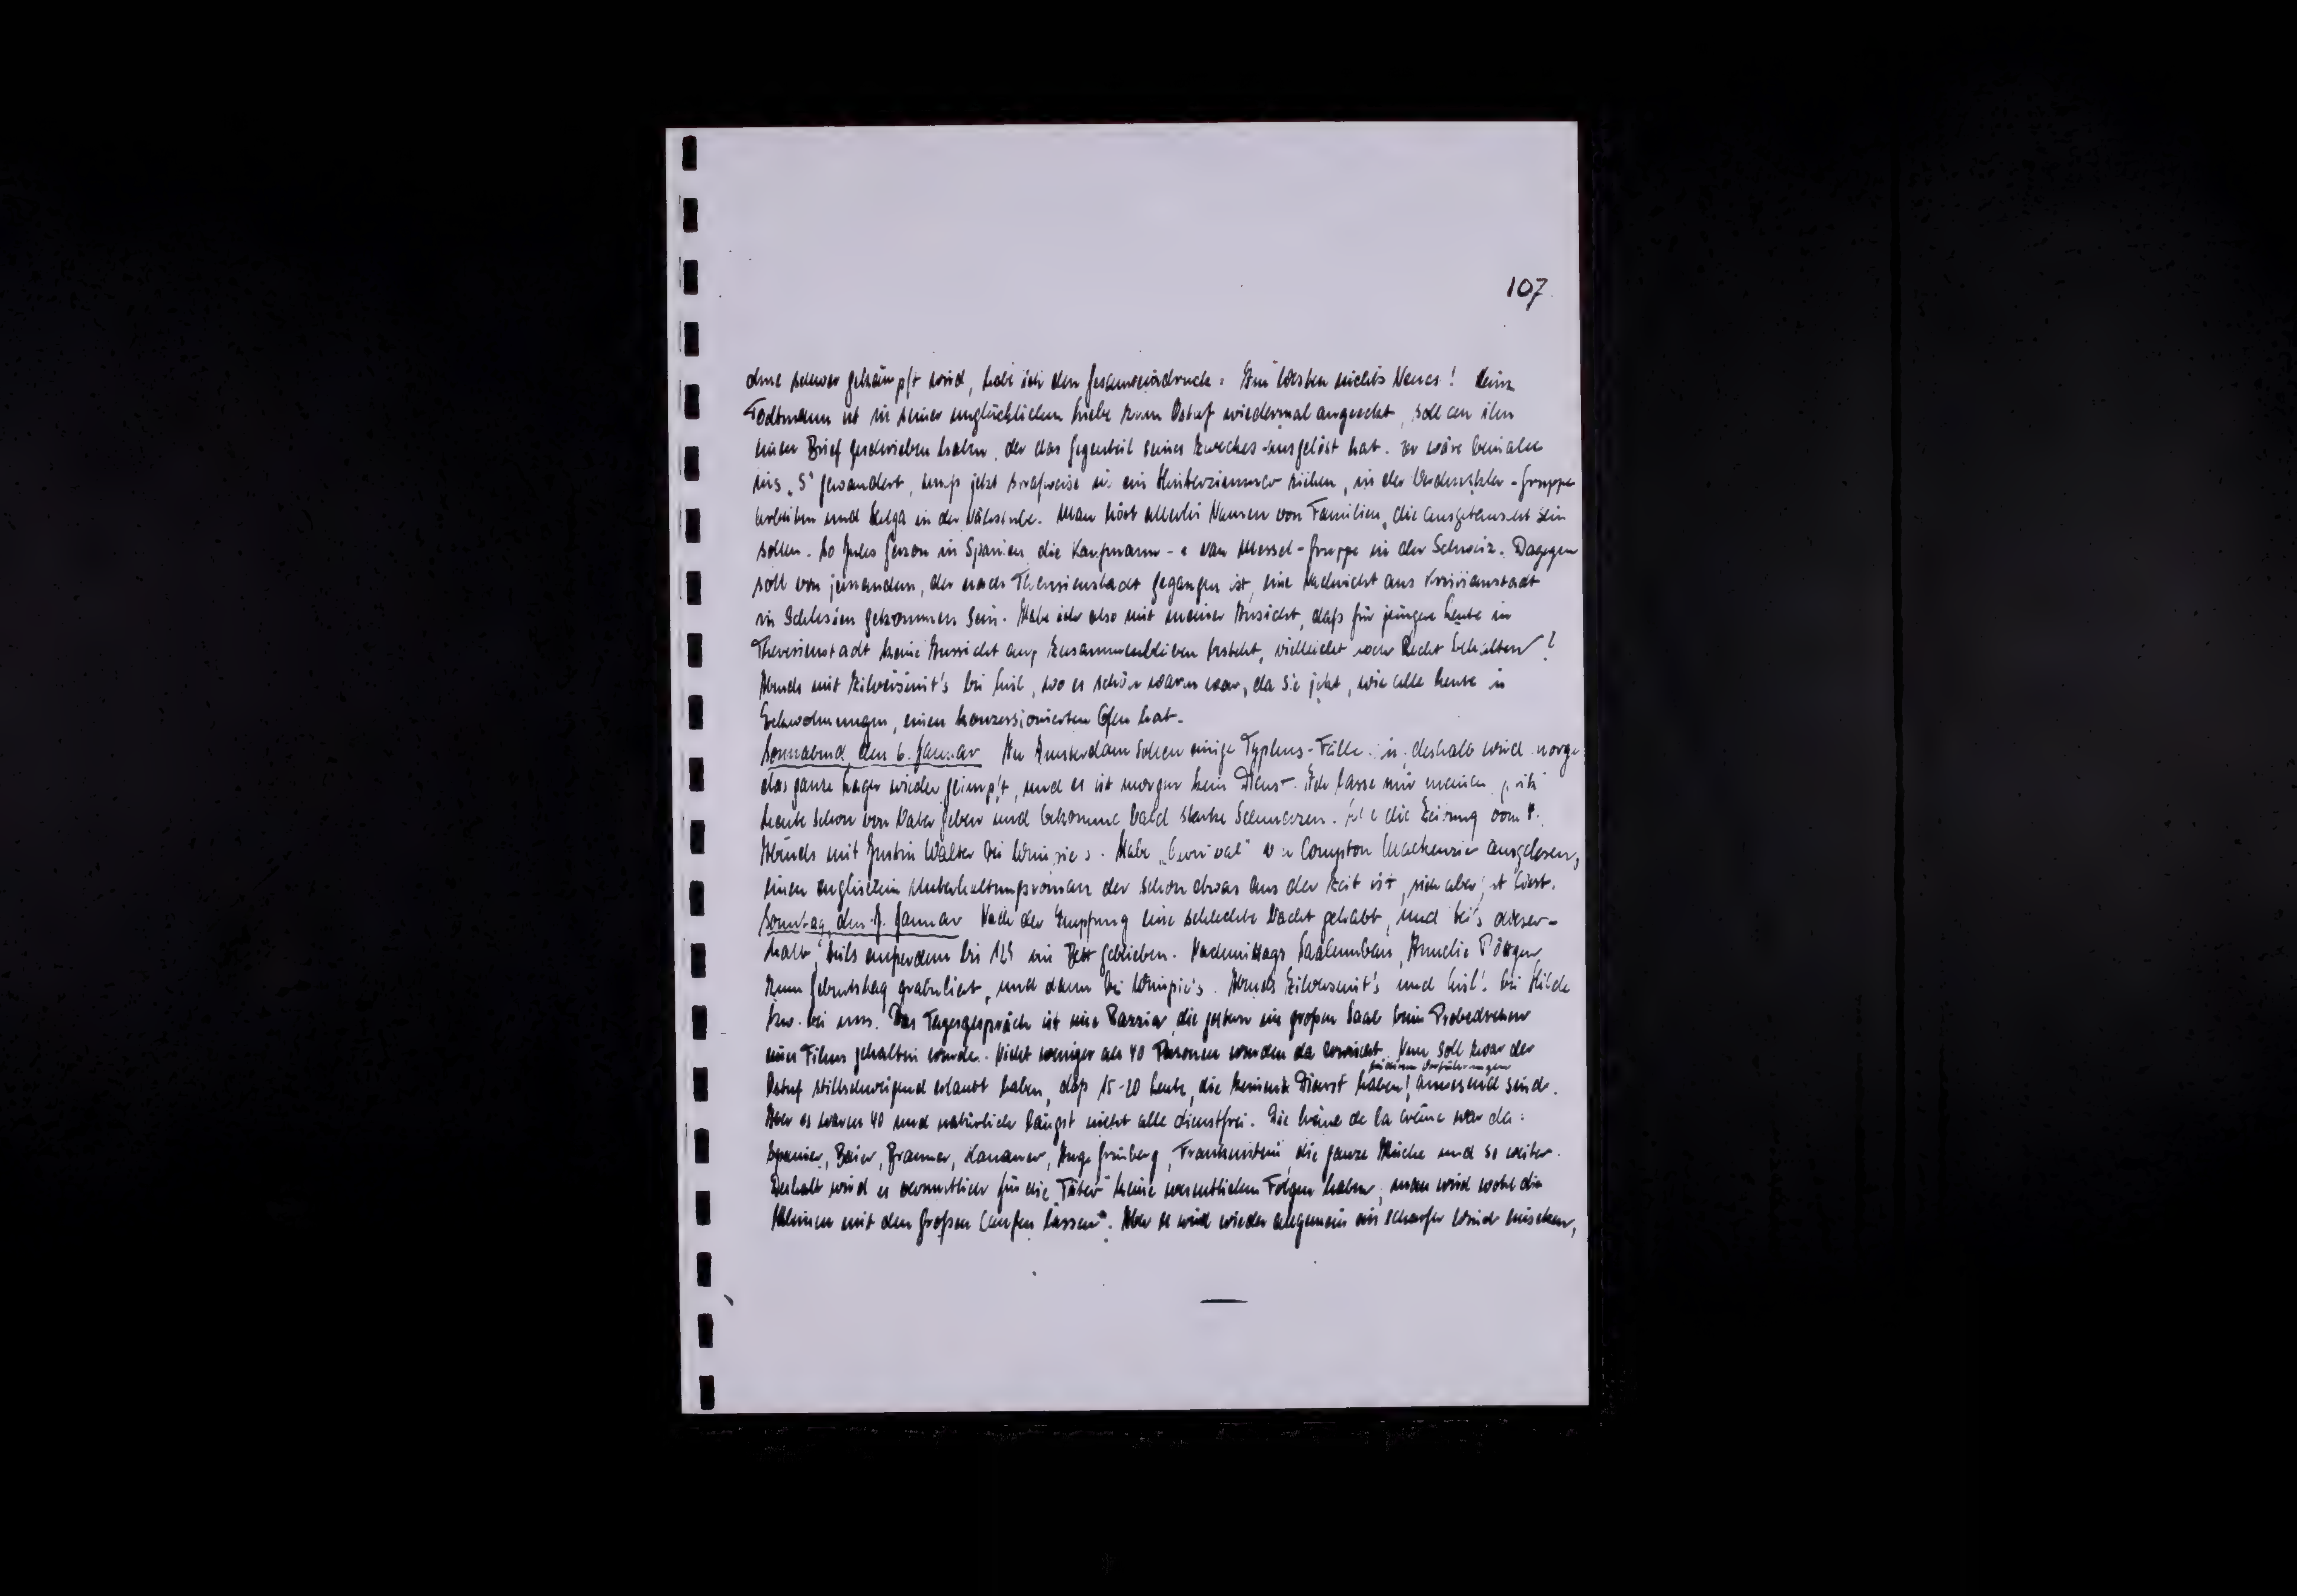 107
und schwer gekämpft wird, habe ich den Gesamteindruck: Im Westen nichts Neues! Heinz
Todtmann ist in seiner unglücklichen Liebe zum Ostuf wiedermal angeeckt, soll an ihn
einen Brief geschrieben haben, der das Gegenteil seines Zweckes ausgelöst hat. Er wäre beinahe
ins „S" gewandert, muß jetzt strafweise in ein Hinterzimmer ziehen, in der Gruppe
arbeiten und Helga in der Nähstube. Man hört allerlei Namen von Familien, die ausgetauscht sein
sollen. So Jules Gerzon in Spanien die Kaufmann- u van Messel-Gruppe in der Schweiz. Dagegen
soll von jemandem, der nach Theresienstadt gegangen ist, eine Nachricht aus
in Schlesien gekommen sein. Habe ich also mit meiner Ansicht, daß für jüngere Leute in
Theresienstadt keine Aussicht auf Zusammenbleiben besteht, vielleicht noch Recht behalten?
Abends mit Zilversmit's bei Lisl, wo es schön warm war, da sie jetzt, wie alle Leute in
Eckwohnungen, einen konzessionierten Ofen hat.
Sonnabend, den 6. Januar In Amsterdam sollen einige Typhus-Fälle deshalb wird morgen
das ganze Lager wieder geimpft, und es ist morgen kein Dienst. Ich lasse mir meine
heute schon von Vater geben und bekomme bald starke Schmerzen. die Zeitung vom
Abends mit Justin Walter bei Habe „Carnival" von Compton Mackenzie ausgelesen,
einen englischen Unterhaltungsroman der schon etwas aus der Zeit ist, sich aber gut liest.
Sonntag, den 7. Januar Nach der Impfung eine schlechte Nacht gehabt, und teils dieser-
halb, teils außerdem bis 1/2 im Bett geblieben. Nachmittags Saalumbau, Amelie
zum Geburtstag gratuliert, und dann bei Abends Zilversmit's und Lisl bei Hilde
bzw. bei uns. Das Tagesgespräch ist eine Razzia, die gestern im großen Saal beim Probedrehen
eines Films gehalten wurde. Nicht weniger als 40 Personen wurden da erwischt. Nun soll zwar der
bei diesen Vorführungen
Ostuf stillschweigend erlaubt haben, daß 15-20 Leute, die keinen Dienst haben, anwesend sind.
Aber es waren 40 und natürlich längst nicht alle dienstfrei. Die crème de la crème war da:
Spanier, Baier, Brammer, Hanauer, Inge Grünberg, Frankenstein, die ganze Küche und so weiter.
Deshalb wird es vermutlich für die „Täter" keine wesentlichen Folgen haben, man wird wohl die
Kleinen mit den Großen laufen lassen". Aber es wird wieder allgemein ein scharfer Wind einsetzen,